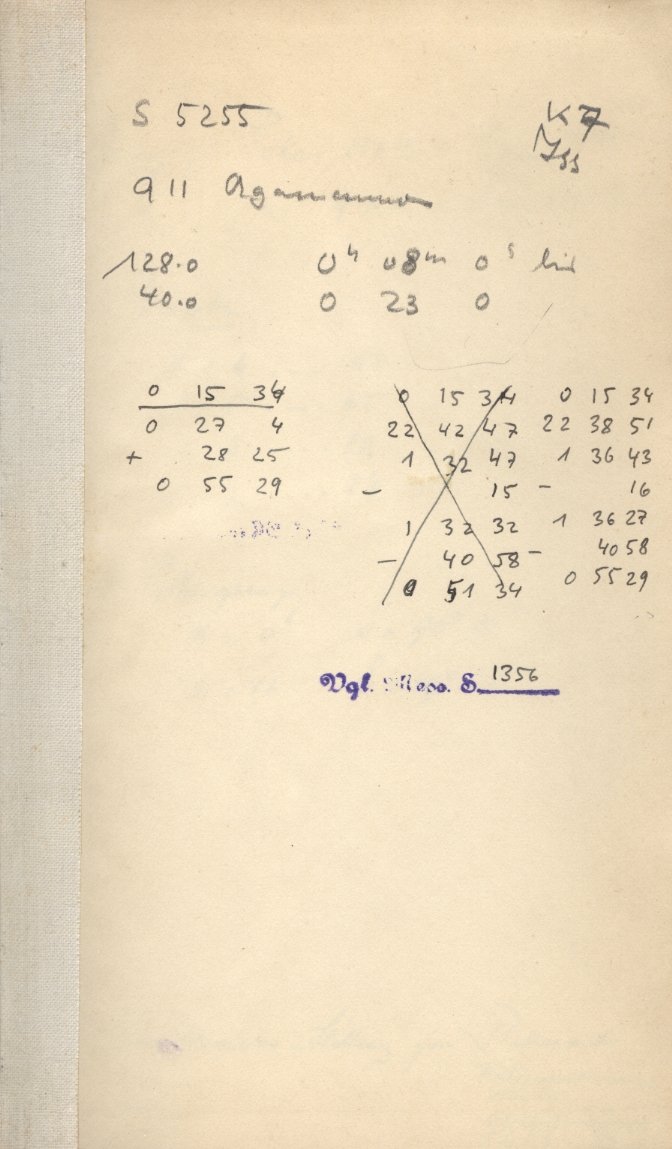 S 5255
K 7
911 Agamemnon
128.0 0h 08m 0s bis
40.0 0 23 0
0 15 34
0 27 4
+ 28 25
0 55 29
0 15 34
22 42 47
1 32 47
– 15
1 32 32
– 40 58
0 51 34
0 15 34
22 38 51
1 36 43
– 16
1 36 27
– 40 58
0 55 29
Vgl. Mess. S. 1356